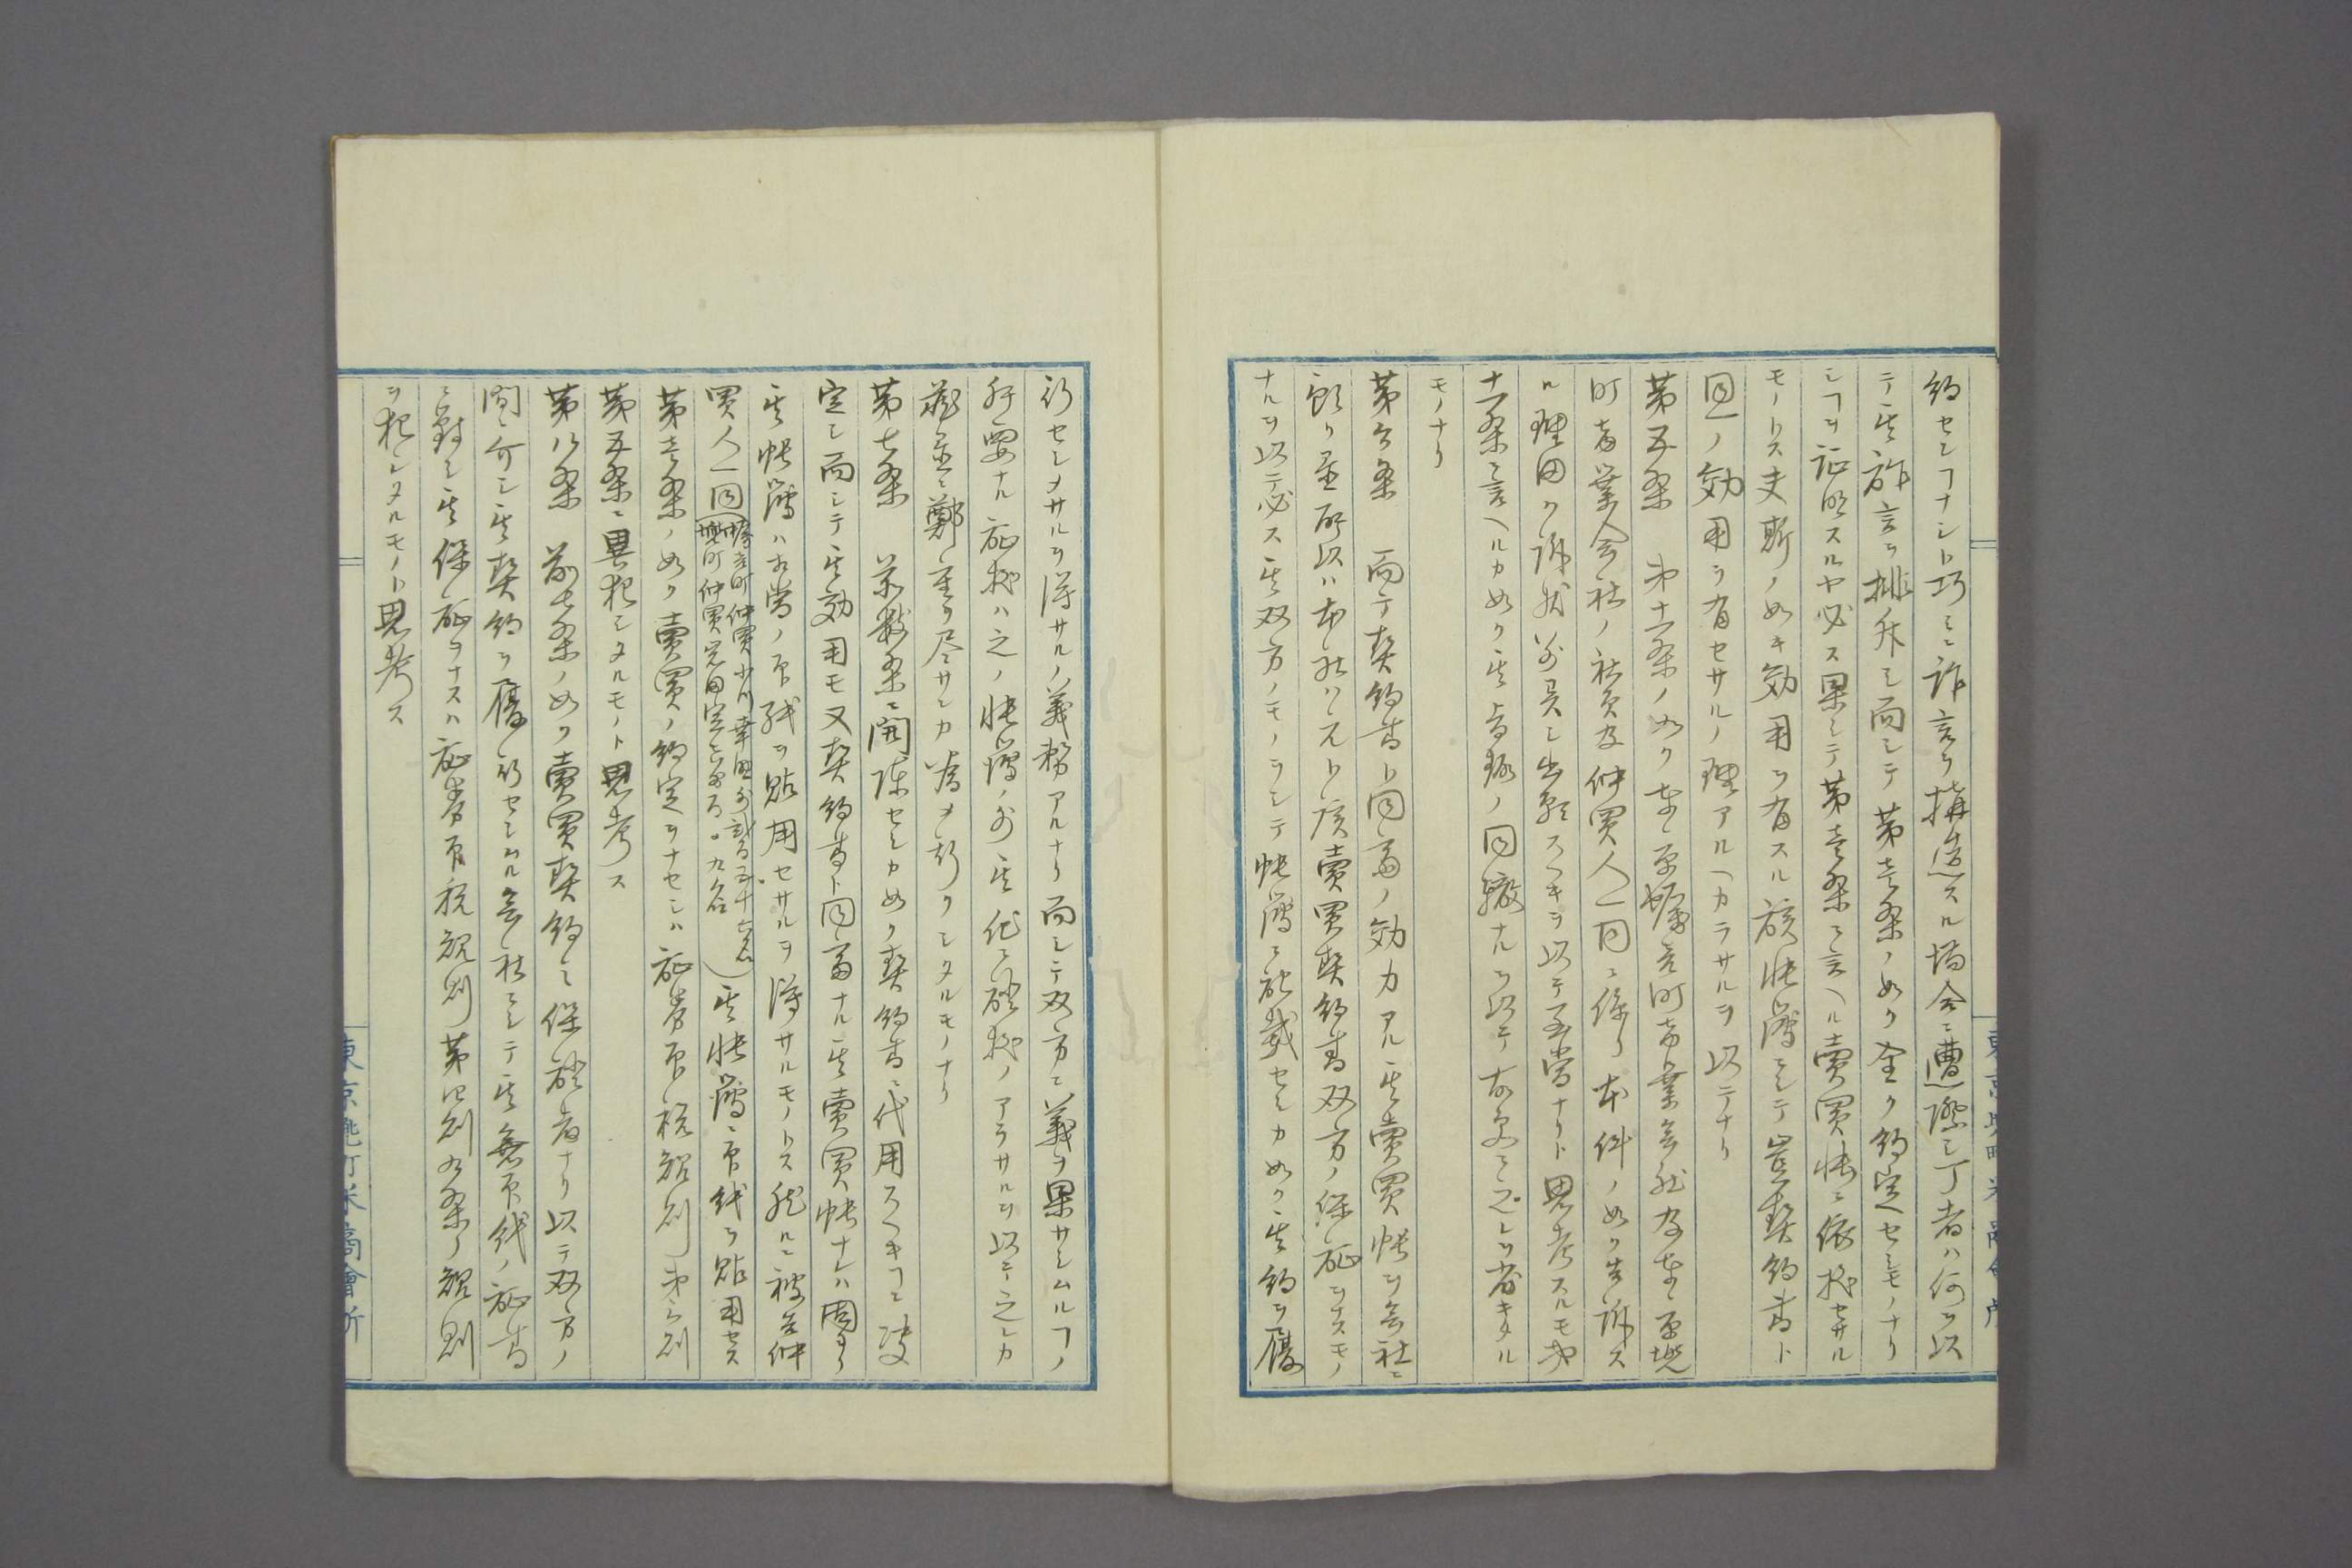 約セシヿナシト巧ミニ詐言ヲ搆造スル場合ニ遭際シ丁者ハ何ヲ以
テ其詐言ヲ排斥シ而シテ第壱条ノ如ク全ク約定セシモノナリ
シヿヲ証明スルヤ必ス果シテ第壱条ニ言ヘル賣買帳ニ依拠セサル
モノトス夫斯ノ如キ効用ヲ有スル該帳簿ニシテ豈契約書ト
同一ノ効用ヲ有セサルノ理アルヘカラサルヲ以テナリ
第五条 第十一条ノ如ク東京蠣売町商業会社及東京兜
町商業会社ノ社員及仲買人一同ニ係リ本件ノ如ク告訴ス
ル理由ク訴状ヲ呈シ出願スヘキヲ以テ至当ナリト思考スルモ第
十一条ニ言ヘルカ如ク其旨趣ノ同轍ナルヲ以テ故更ニ之レヲ省キタル
モノナリ
第六条 而テ契約書ト同等ノ効力アル其賣買帳ヲ会社ニ
預リ置所以ハ本社ハ元ト該賣買契約書双方ノ保証ヲナスモノ
ナルヲ以テ必ス其双方ノモノヲシテ帳簿ニ記載セシカ如ク其約ヲ履
行セシメサルヲ得サルノ義務アルナリ而シテ双方ニ義ヲ果サシムルヿノ
肝要ナル証拠ハ之ノ帳簿ノ外其他ニ確拠ノアラサルヲ以テ之レカ
蔵置ニ鄭重ヲ尽サンカ為メ斯クシタルモノナリ
第七条 前数条ニ開陳セシカ如ク契約書ニ代用スヘキヿニ決
定シ而シテ其効用モ又契約書ト同等ナル其賣買帳ナレハ固ヨリ
其帳簿ハ相当ノ印紙ヲ貼用セサルヲ得サルモノトス然ルニ被告仲
買人一同(蠣売町仲買小川幸里外弐百五十六名
兜町仲買岩田定七外百〇九名)其帳簿ニ印紙ヲ貼用セス
第壱条ノ如ク賣買ノ約定ヲナセシハ証券印税規則第三則
第五条ニ異犯シタルモノト思考ス
第八条 前七条ノ如ク賣買契約ニ保証者ナリ以テ双方ノ
間ニ介シ其契約ヲ履行セシムル会社ニシテ其無印紙ノ証書
ニ対シ其保証ヲナスハ証券印税規則第四則九条ノ規則
ヲ犯シタルモノト思考ス
東京兜町米商會所